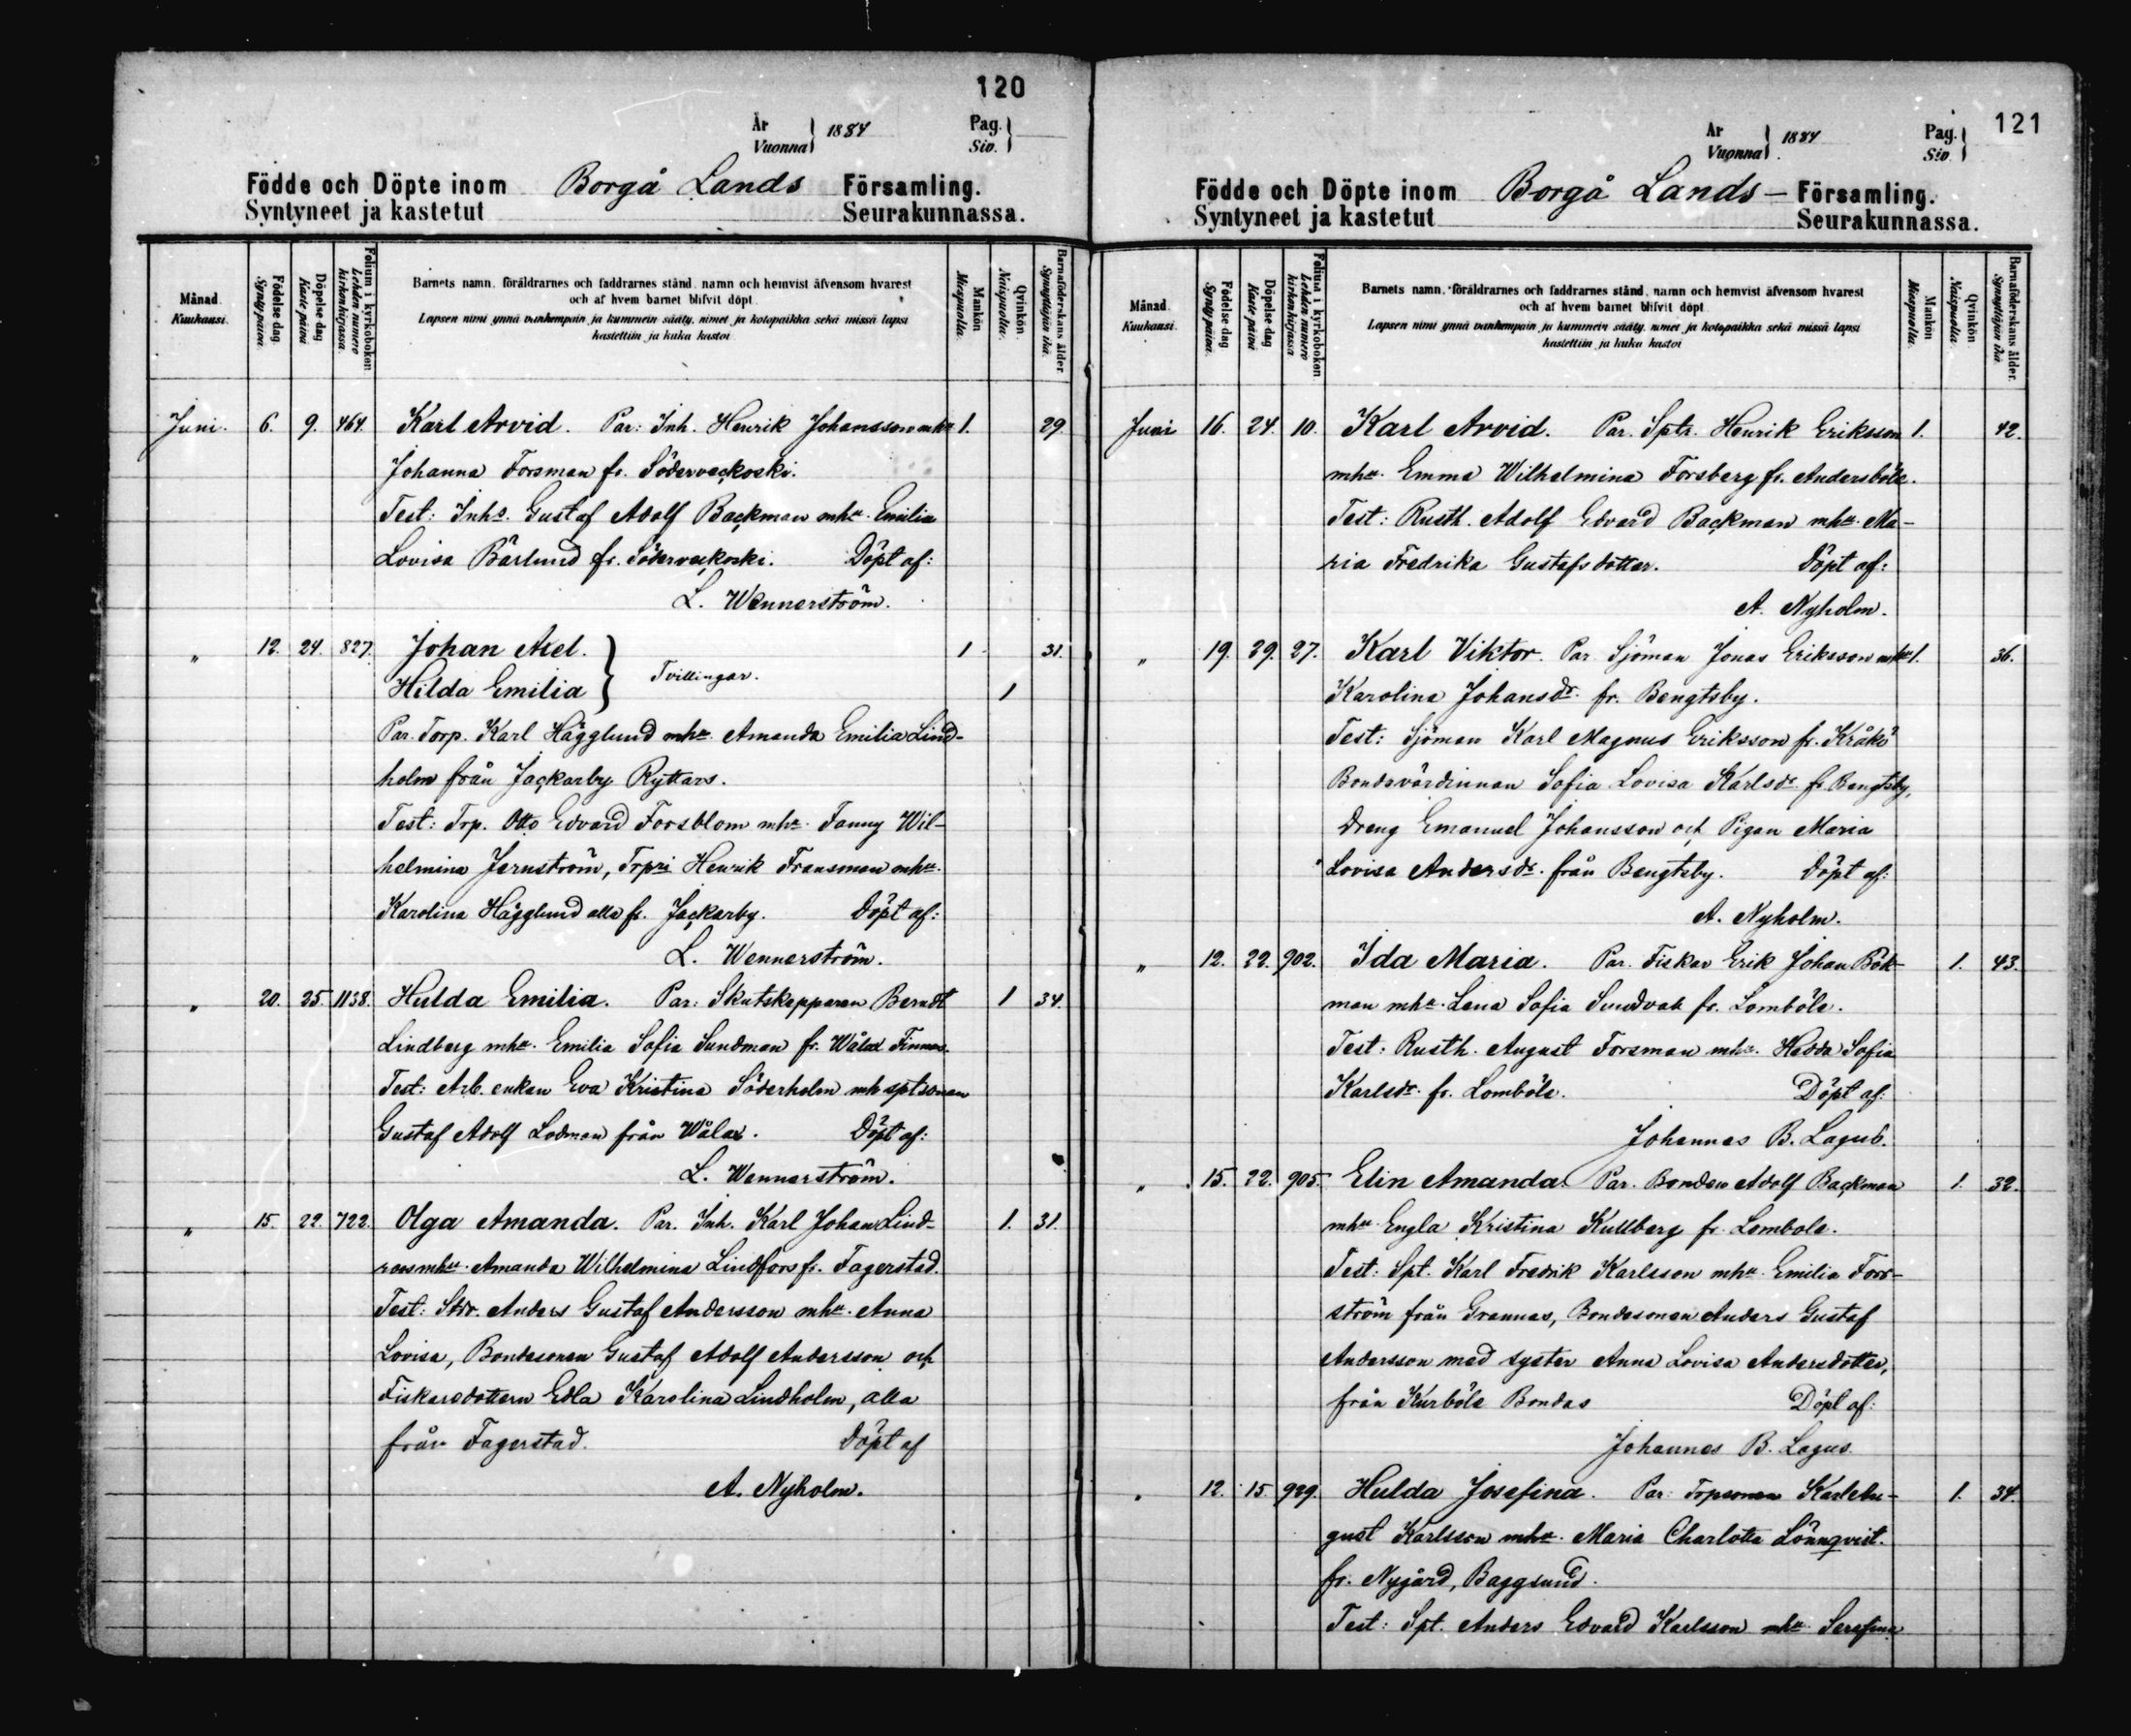 120
År
Vuonna
1884
Pag.
Siv.
Födde och Döpte inom Borgå Lands Församling.
Syntyneet ja kastetut Seurakunnassa.
Månad.
Kuukausi.
Födelse dag
Synty päivä.
Döpelse dag
Kaste päivä
Folium i kyrkoboken
Lehden numero
kirkonkirjassa.
Barnets namn, föräldrarnes och faddrarnes stånd, namn och hemvist äfvensom hvarest
och af hvem barnet blifvit döpt.
Lapsen nimi ynnä vanhempain ja kummein sääty, nimet ja kotopaikka sekä missä lapsi
kastettiin ja kuka kastoi
Mankön
Miespuolia.
Qvinkön.
Naispuolia.
Barnaföderskans ålder.
Synnyttäjän ikä.
Juni. 6. 9. 464. Karl Arvid. Par: Inh. Henrik Johansson mhu 1. 29.
Johanna Forsman fr. Söderveckoski.
Test: Inhs. Gustaf Adolf Backman mhu. Emilia
Lovisa Bärlund fr. Söderveckoski. Döpt af:
L. Wennerström.
" 12. 24. 827. Johan Axel. 1 31.
Hilda Emilia } Tvillingar. 1
Par. Torp. Karl Hägglund mhu. Amanda Emilia Lind-
holm från Jackarby Ryttars.
Test: Trp. Otto Edvard Forsblom mhu. Fanny Wil-
helmina Jernström, Trpri Henrik Fransman mhu.
Karolina Hägglund alla fr. Jackarby. Döpt af:
L. Wennerström.
" 20. 25. 1138. Hulda Emilia. Par: Skutskepparen Berndt 1 34.
Lindberg mhu. Emilia Sofia Sundman fr. Wålax Finnas.
Test: Arb. enkan Eva Kristina Söderholm mh sptsonen
Gustaf Adolf Lodman från Wålax. Döpt af:
L. Wennerström.
" 15. 22. 722. Olga Amanda. Par. Inh. Karl Johan Lind- 1. 31.
roos mhu. Amanda Wilhelmina Lindfors fr. Fagerstad.
Test: Stdr. Anders Gustaf Andersson mhu. Anna
Lovisa, Bondesonen Gustaf Adolf Andersson och
Fiskaredottern Edla Karolina Lindholm, alla
från Fagerstad. Döpt af
A. Nyholm.
121
År
Vuonna
1884
Pag.
Siv.
Födde och Döpte inom Borgå Lands - Församling.
Syntyneet ja kastetut Seurakunnassa.
Månad.
Kuukausi.
Födelse dag
Synty päivä.
Döpelse dag
Kaste päivä
Folium i kyrkoboken
Lehden numero
kirkonkirjassa
Barnets namn, föräldrarnes och faddrarnes stånd, namn och hemvist äfvensom hvarest
och af hvem barnet blifvit döpt
Lapsen nimi ynnä vanhempain ja kummein sääty, nimet ja kotopaikka sekä missä lapsi
kastettiin ja kuka kastoi
Mankön
Miespuolia.
Qvinkön
Naispuolia.
Barnaföderskans ålder.
Synnyttäjän ikä.
Juni 16. 24. 10. Karl Arvid. Par. Sptr. Henrik Eriksson 1. 42.
mhu. Emma Wilhelmina Forsberg fr. Andersböle.
Test: Rusth. Adolf Edvard Backman mhu. Ma-
ria Fredrika Gustafsdotter. Döpt af:
A. Nyholm.
" 19. 29. 27. Karl Viktor. Par Sjöman Jonas Eriksson mhu 1. 36.
Karolina Johansdr. fr. Bengtsby.
Test: Sjöman Karl Magnus Eriksson fr. Kråkö
Bondevärdinnan Sofia Lovisa Karlsdr. fr. Bengtsby,
Dreng Emanuel Johansson och Pigan Maria
Lovisa Andersdr. från Bengtsby. Döpt af:
A. Nyholm.
" 12. 22. 902. Ida Maria. Par. Fiskar Erik Johan Bök- 1. 43.
man mhu. Lena Sofia Sundvall fr. Lomböle.
Test: Rusth. August Forsman mhu. Hedda Sofia
Karlsdr. fr. Lomböle. Döpt af:
Johannes B. Lagus.
" 15. 22. 905. Elin Amanda. Par. Bonden Adolf Backman 1. 32.
mhu Engla Kristina Kullberg fr. Lombole.
Test: Spt. Karl Fredrik Karlsson mhu. Emilia Fors-
ström från Grannas, Bondesonen Anders Gustaf
Andersson med syster Anna Lovisa Andersdotter,
från Kurböle Bondas Döpt af:
Johannes B. Lagus.
" 12. 15. 929. Hulda Josefina. Par: Torpsonen Karl Au- 1. 34.
gust Karlsson mhu. Maria Charlotta Lönnqvist.
fr. Nygård, Baggsund.
Test: Spt. Anders Edvard Karlsson mhu Serafina